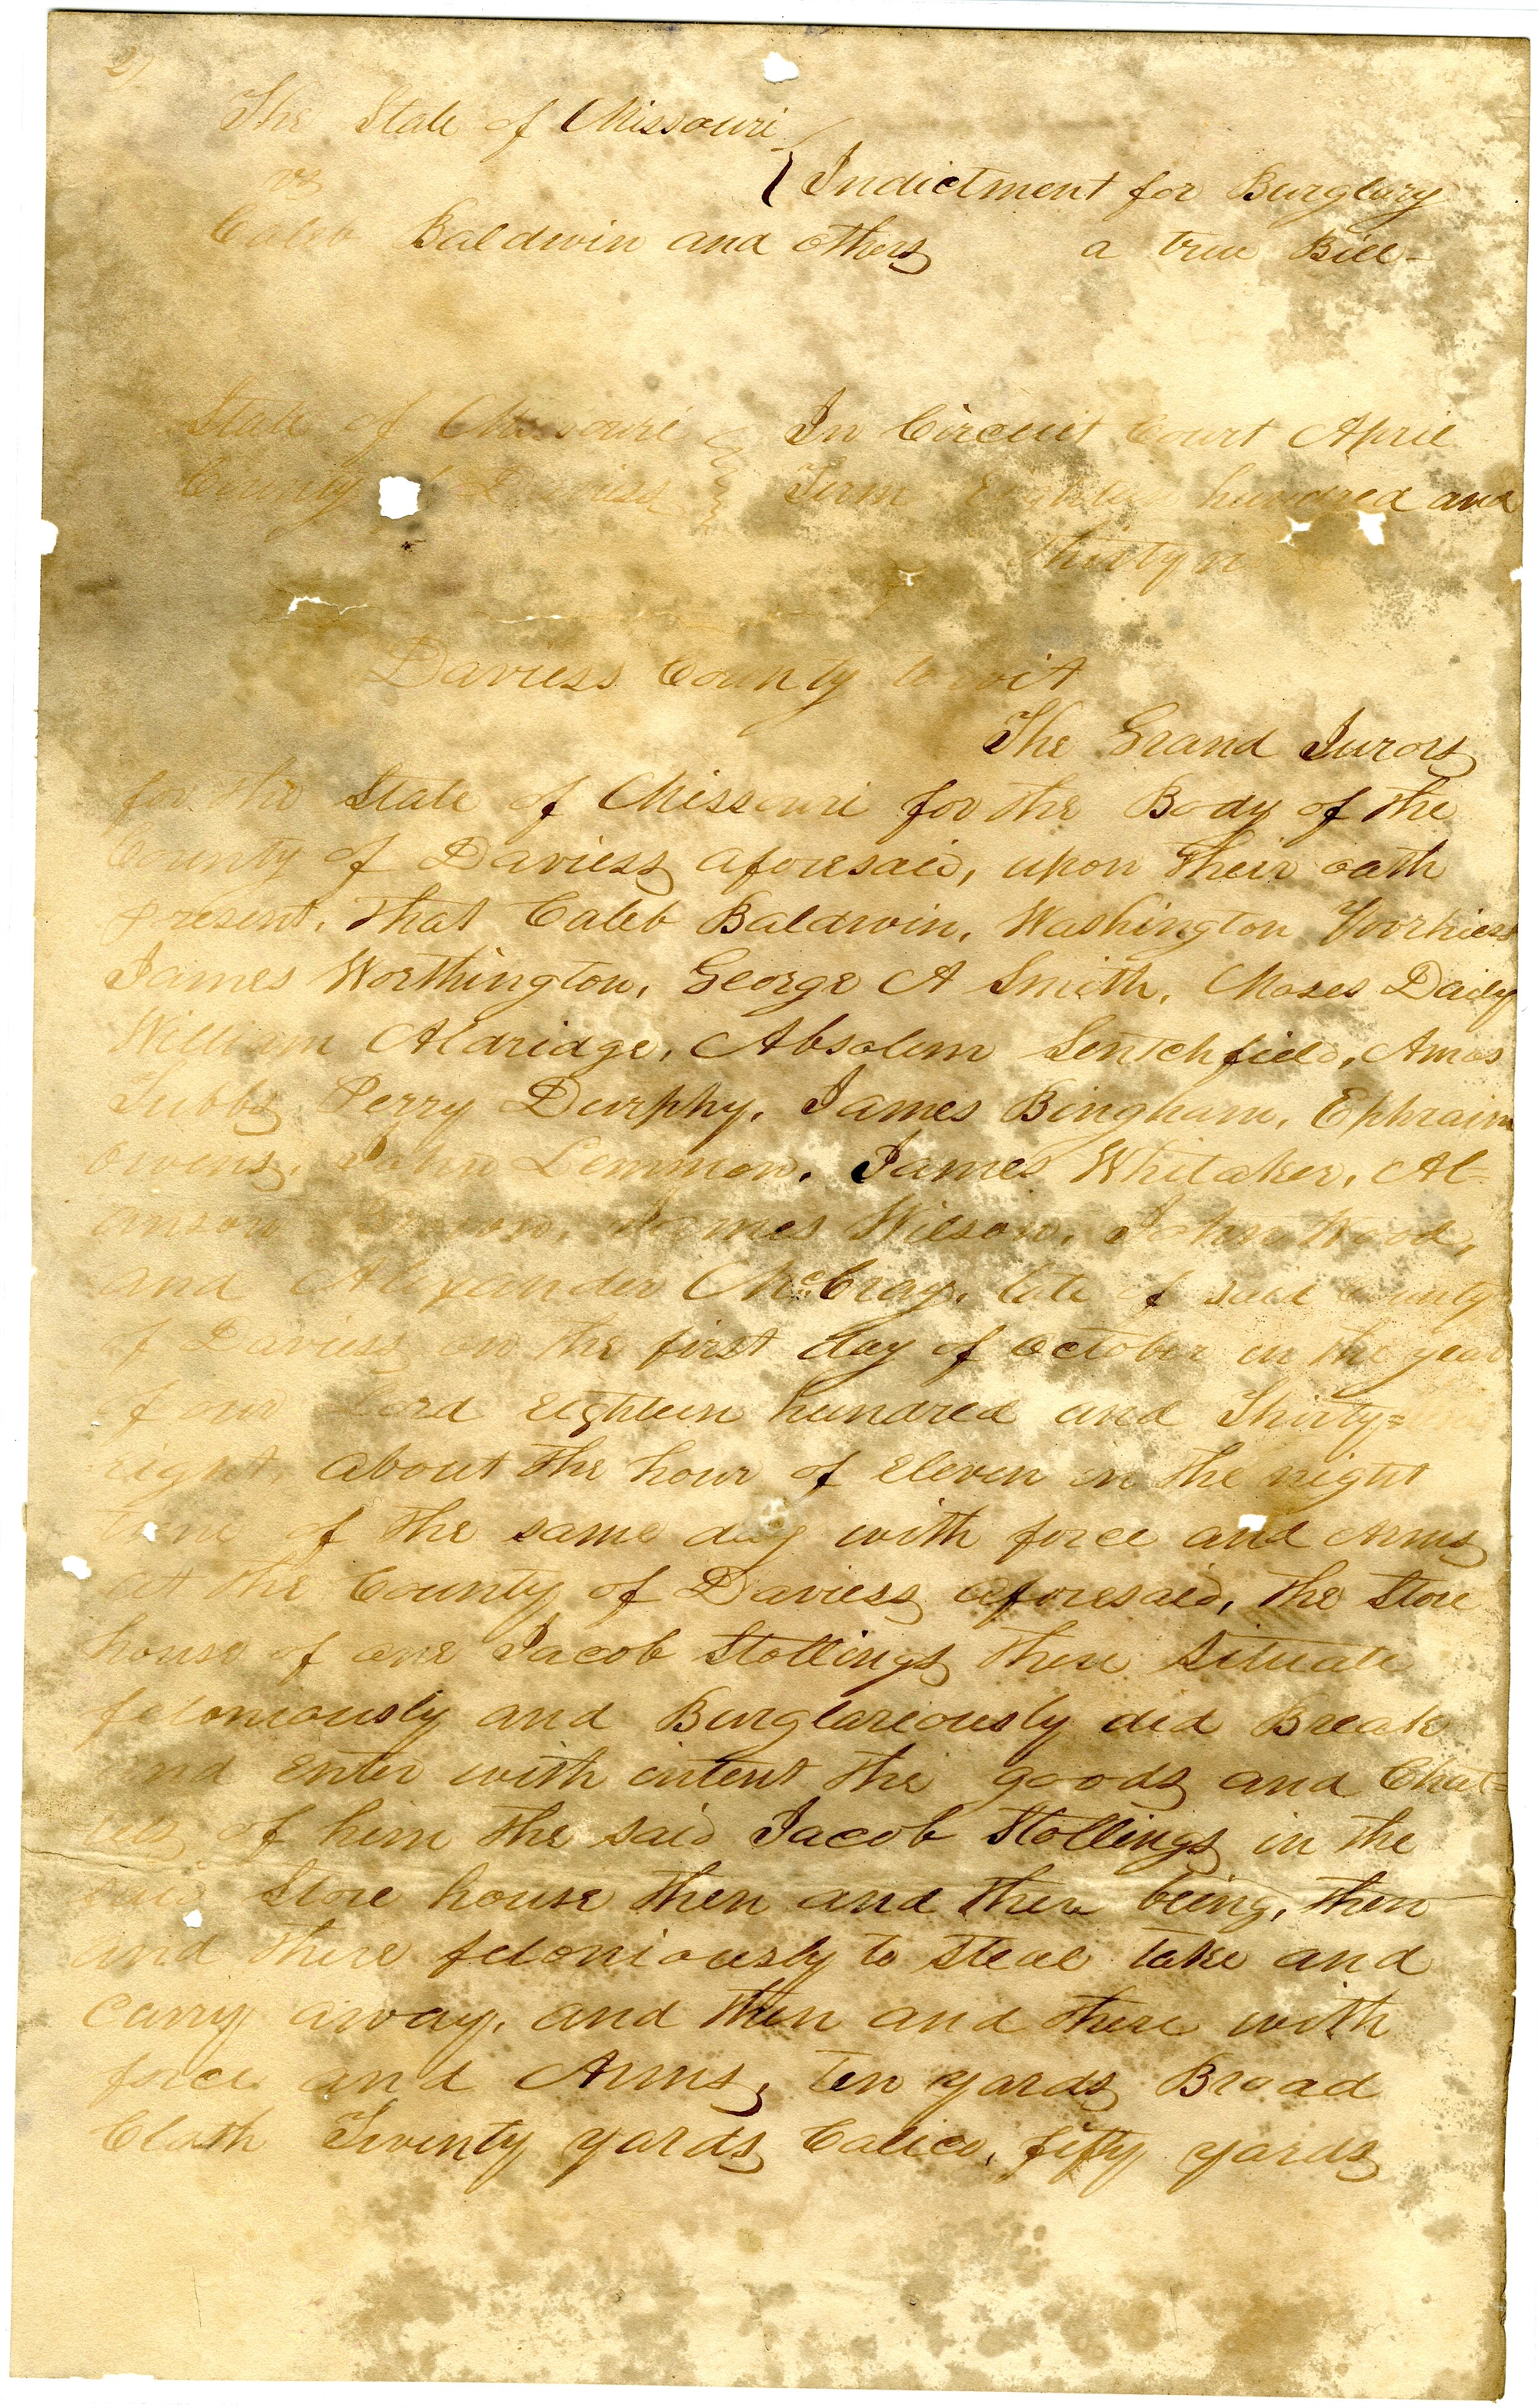 27
The State of Missouri
vs
Indictment for Burglary
Caleb Baldwin and others a true Bill-
State of Missouri In Circuit Court April
County of Daviess Term Eighteen hundred and
thirty n
Daviess County to wit
The Grand Jurors
for the State of Missouri for the Body of the
County of Daviess aforesaid, upon their oath
present, that Caleb Baldwin, Washington Voorhiess
James Worthington, George A Smith, Moses Daily
William Aldridge, Absolem Sentchfield, Amos
Tubbs Perry Durphy, James Bingham, Ephraim
Owens, John Lemmon, James Whitaker, Al=
anson Brown, James Wilson, John Wood,
and Alexander McCray, late of said County
of Daviess on the first day of October in the year
of our Lord Eighteen hundred and Thirty=
eight, about the hour of Eleven in the night
time of the same day with force and Arms
at the County of Daviess aforesaid, the Store
house of one Jacob Stollings there situate
feloniously and Burglariously did Break
and enter with intent the goods and Chat=
tels of him the said Jacob Stollings in the
said Store house then and there being, then
and there feloniously to steal take and
carry away, and then and there with
force and Arms, ten yards Broad
Cloth Twenty yards Calico, fifty yards